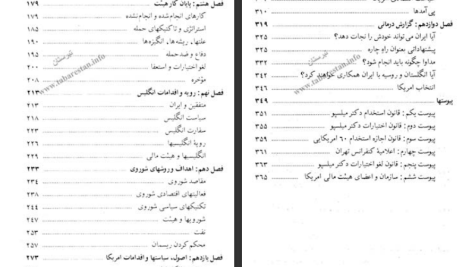 فصل هشتم: پایان کار هیئت ۱۷۹
کارهای انجام‌شده و انجام‌نشده ۱۷۹
استراتژی و تاکتیکهای حمله ۱۸۵
علتها، ریشه‌ها، انگیزه‌ها ۱۹۰
دفاع و ضدحمله ۱۹۵
لغو اختیارات و استعفا ۲۰۰
مؤخره ۲۰۸
فصل نهم: رویه و اقدامات انگلیس ۲۱۳
متفقین و ایران ۲۱۳
سیاست انگلیس ۲۱۸
سفارت انگلیس ۲۲۳
رویهٔ انگلیسیها
انگلیسیها و هیئت مالی ۲۲۹
فصل دهم: اهداف و روشهای شوروی ۲۳۳
مقاصد شوروی ۲۳۴
فعالیتهای اقتصادی شوروی ۲۳۸
تکنیکهای سیاسی شوروی ۲۴۴
شورویها و هیئت ۲۴۷
نفت ۲۵۳
محکم کردن ریسمان ۲۵۷
فصل یازدهم: اصول، سیاستها و اقدامات امریکا ۲۷۳
پی‌آمدها ۳۱۰
فصل دوازدهم: گزارش درمانی ۳۱۹
آیا ایران می‌تواند خودش را نجات دهد؟ ۳۲۵
پیشنهاداتی بعنوان راه چاره ۳۲۵
مداوا چگونه باید انجام شود؟ ۳۳۲
آیا انگلستان و روسیه با ایران همکاری خواهند کرد؟ ۳۴۲
انتخاب امریکا ۳۴۷
پیوستها ۳۴۹
پیوست یکم: قانون استخدام دکتر میلسپو ۳۵۱
پیوست دوم: قانون اختیارات دکتر میلسپو ۳۵۵
پیوست سوم: قانون اجازه استخدام ۶۰ امریکایی ۳۵۹
پیوست چهارم: اعلامیهٔ کنفرانس تهران
پیوست پنجم: قانون لغو اختیارات دکتر میلسپو ۳۶۳
پیوست ششم: سازمان و اعضای هیئت مالی امریکا ۳۶۵
تبرستان
www.tabarestan.info
تبرستان
www.tabarestan.info